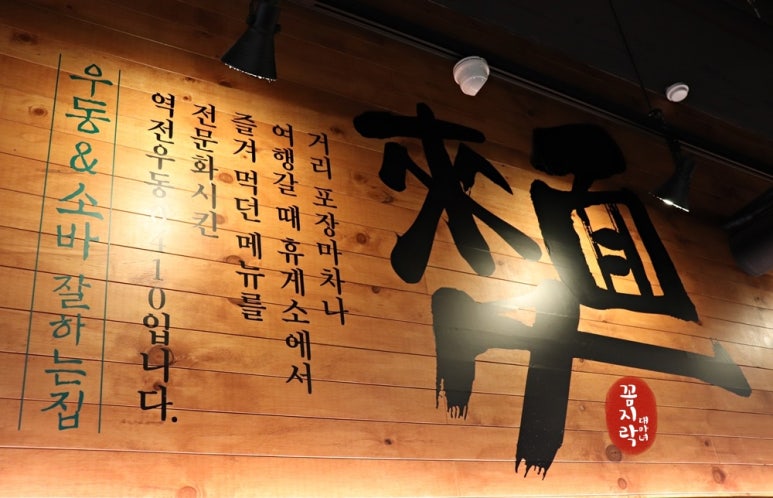 麵
거리 포장마차나
여행갈 때 휴게소에서
즐겨 먹던 메뉴를
전문화시킨
역전우동0410입니다.
우동&소바 잘하는집
꼼지락
대마녀